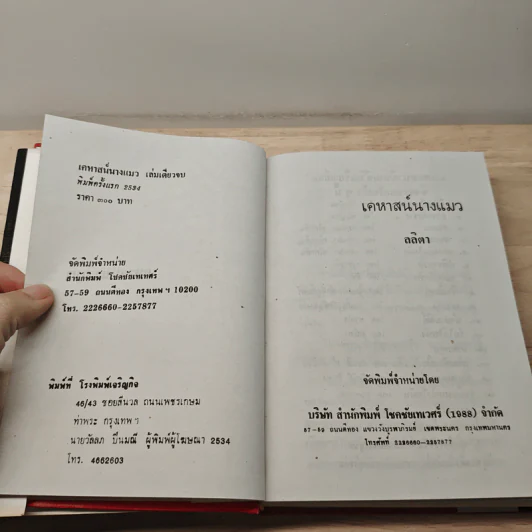 เคหาสน์นางแมว เล่มเดียวจบ
พิมพ์ครั้งแรก 2534
ราคา ๓๐๐ บาท
จัดพิมพ์จำหน่าย
สำนักพิมพ์ โชคชัยเทเวศร์
57-59 ถนนตีทอง กรุงเทพ ฯ 10200
โทร. 2226660-2257877
พิมพ์ที่ โรงพิมพ์เจริญกิจ
46/43 ซอยสีนวล ถนนเพชรเกษม
ท่าพระ กรุงเทพ ฯ
นายวัลลภ ปิ่นมณี ผู้พิมพ์ผู้โฆษณา 2534
โทร. 4662603
เคหาสน์นางแมว
ลลิตา
จัดพิมพ์จำหน่ายโดย
บริษัท สำนักพิมพ์ โชคชัยเทเวศร์ (1988) จำกัด
57-59 ถนนตีทอง แขวงวังบูรพาภิรมย์ เขตพระนคร กรุงเทพมหานคร
โทรศัพท์ 2226660-2257877